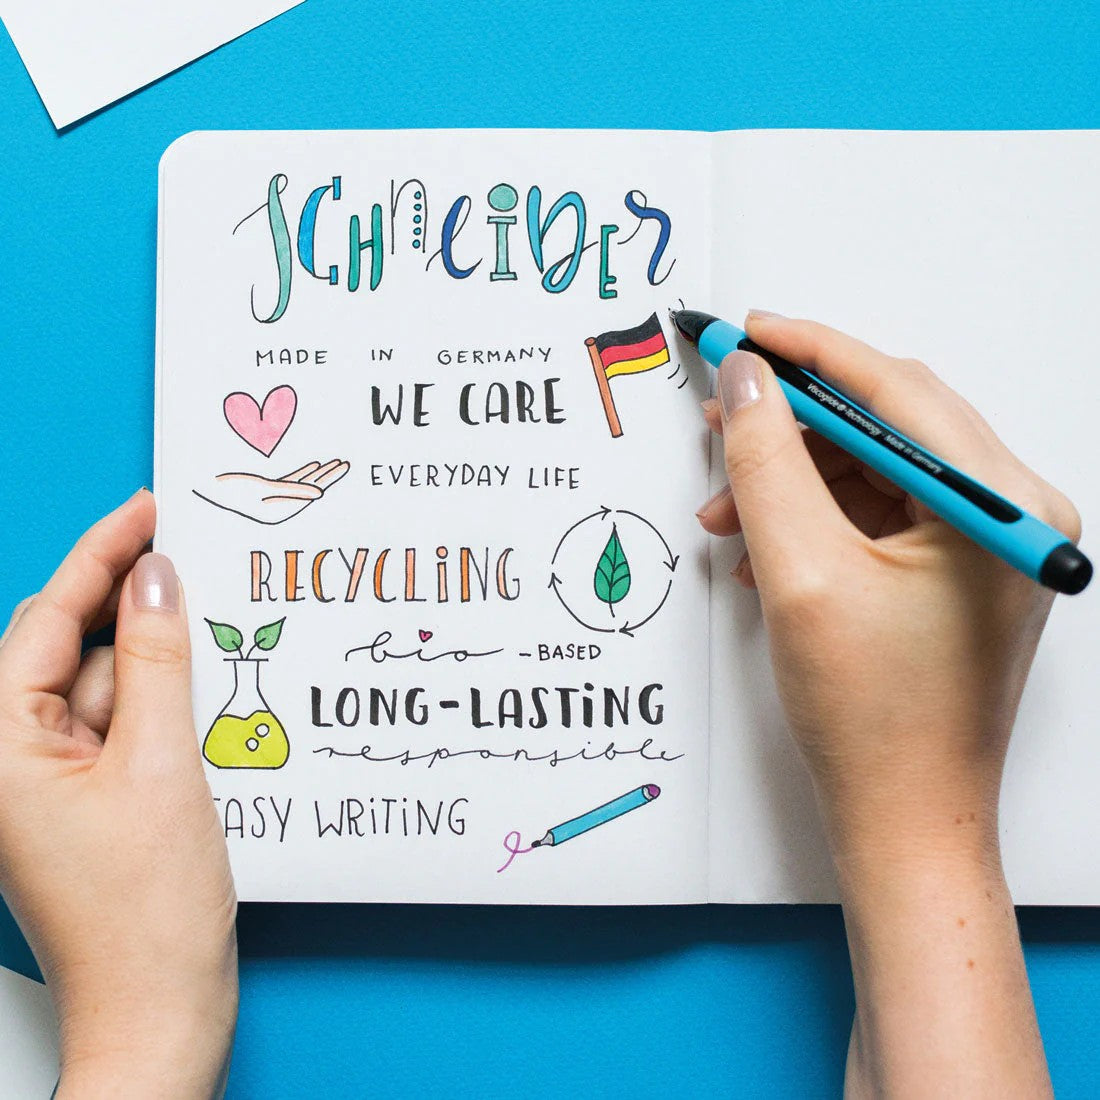 SCHNEIDER
MADE IN GERMANY
WE CARE
EVERYDAY LIFE
RECYCLING
bio -BASED
LONG-LASTING
responsible
EASY WRITING
Viscoglide®-Technology · Made in Germany